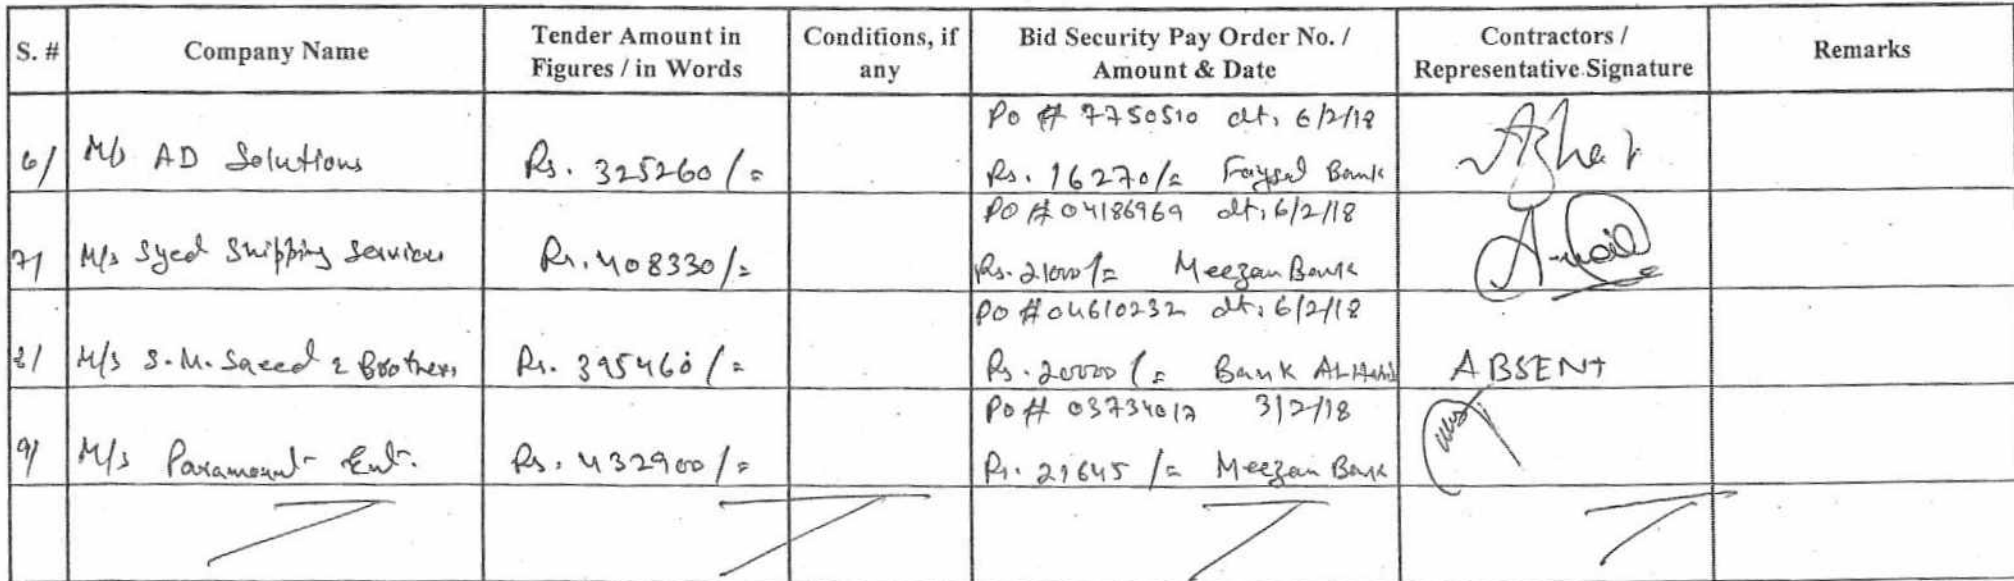 S. #
Company Name
Tender Amount in
Figures / in Words
Conditions, if
any
Bid Security Pay Order No. /
Amount & Date
Contractors /
Representative Signature
Remarks
6/
M/s AD Solutions
Rs. 325260/=
PO # 7750510 dt: 6/2/18
Rs. 16270/= Faysal Bank
Azhar
7/
M/s Syed Shipping Services
Rs. 408330/=
PO # 04186969 dt: 6/2/18
Rs. 21000/= Meezan Bank
8/
M/s S.M. Saeed & Brothers
Rs. 395460/=
PO # 04610232 dt: 6/2/18
Rs. 20000/= Bank AL Habib
ABSENT
9/
M/s Paramount Ent.
Rs. 432900/=
PO # 03734017 3/2/18
Rs. 21645/= Meezan Bank